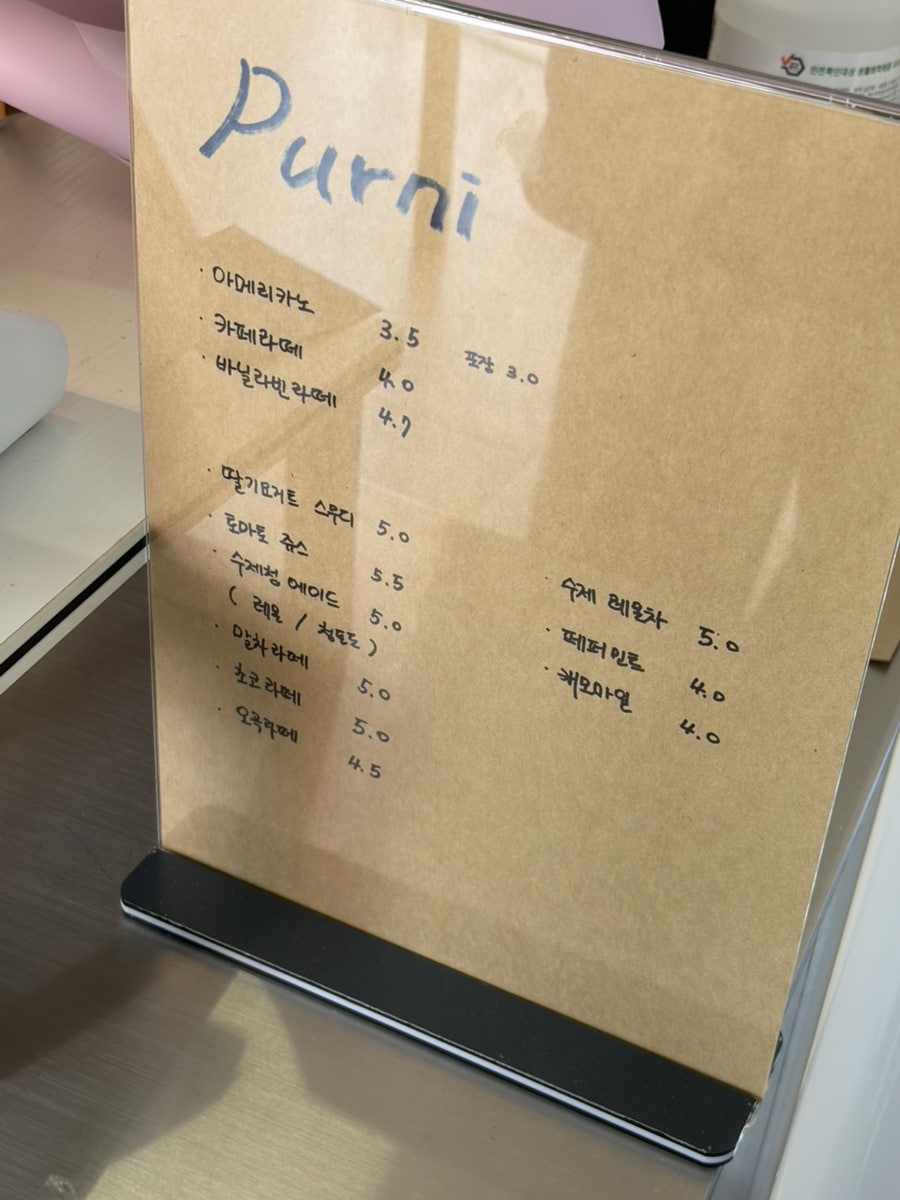 안전확인대상 생활화학제품
Purni
· 아메리카노 3.5 포장 3.0
· 카페라떼 4.0
· 바닐라빈라떼 4.7
· 딸기요거트 스무디 5.0
· 토마토 쥬스 5.5
· 수제청 에이드 5.0
( 레몬 / 청포도 )
· 말차라떼 5.0
· 초코라떼 5.0
· 오곡라떼 4.5
· 수제 레몬차 5.0
· 페퍼민트 4.0
· 캐모마일 4.0